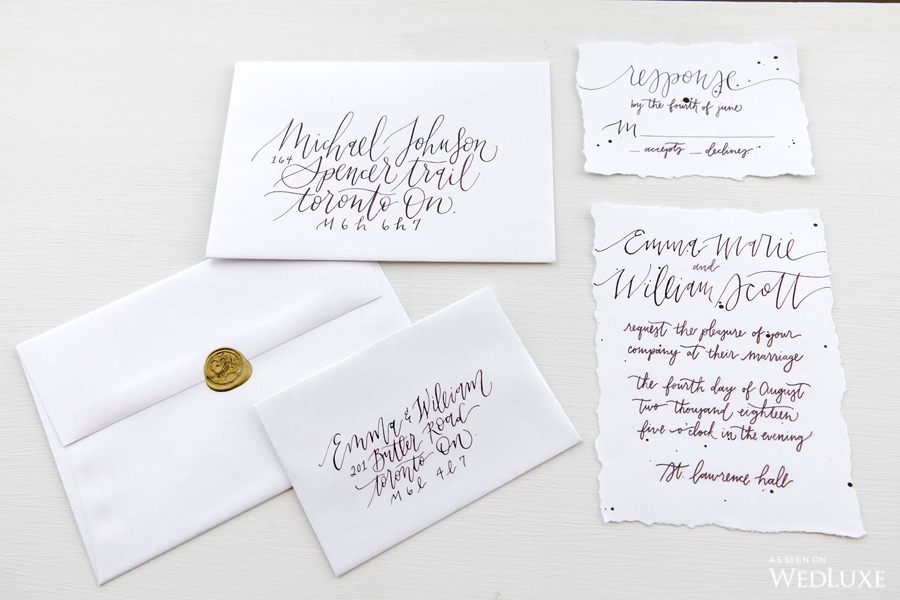 Michael Johnson
164 Spencer trail
toronto On.
M6h 6h7
response
by the fourth of june
M
accepts declines
Emma Marie
and
William Scott
request the pleasure of your
company at their marriage
the fourth day of August
two thousand eighteen
five o'clock in the evening
St. lawrence hall
Emma & William
201 Butler Road
toronto On.
M6l 4l7
AS SEEN ON
WEDLUXE